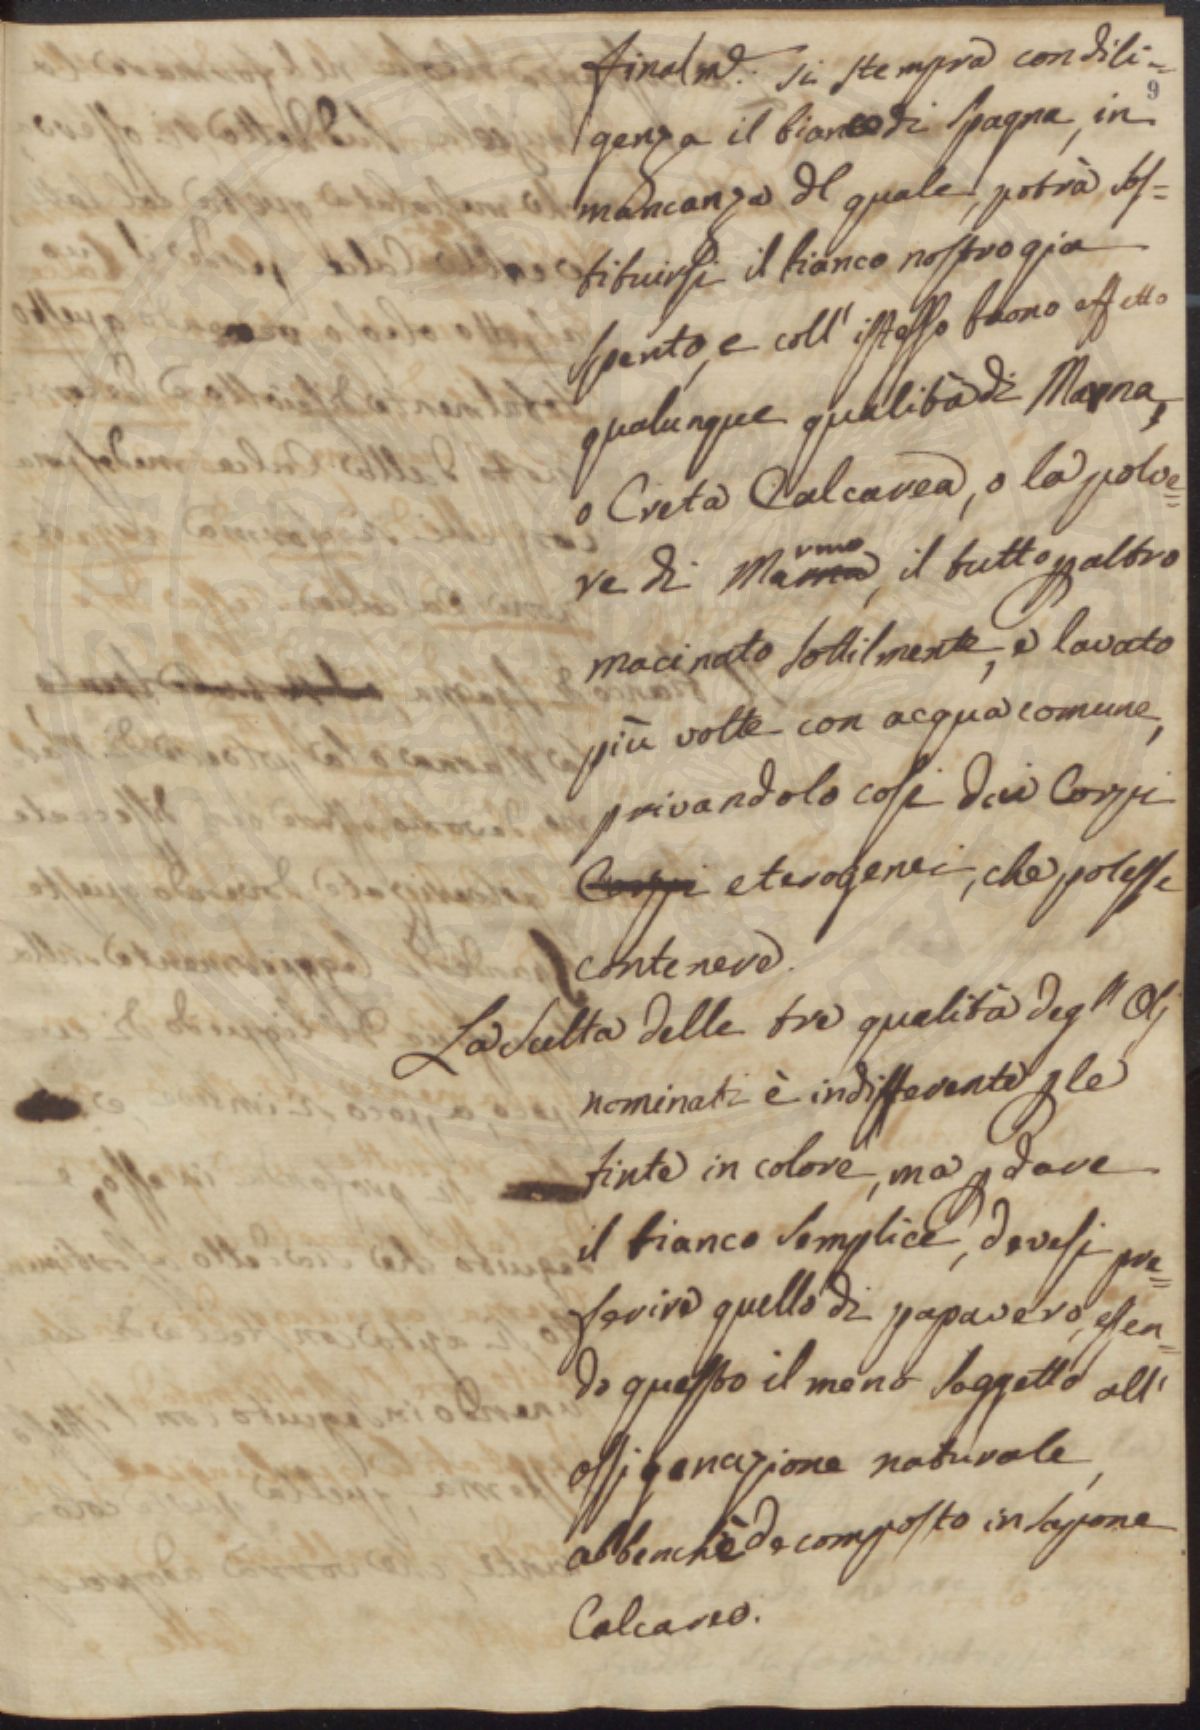 finalm.e si stempra con dili=
9
genza il bianco di Spagna, in
mancanza del quale, potrà sos=
tituirsi il bianco nostro gia
spento, e coll' istesso buono effetto
qualunque qualità di Marna,
o Creta Calcarea, o la polve=
re di Marmo, il tutto p altro
macinato sottilmente, e lavato
più volte con acqua comune,
privandolo cosi dei Corpi
Corpi eterogenei, che potesse
contenere.
La scelta delle tre qualità degl'' Olj
nominati è indifferente p le
tinte in colore, ma p dare
il bianco semplice, devesi pre=
ferire quello di papavero, essen=
do questo il meno soggetto all'
ossigenazione naturale,
abbenchè decomposto in sapone
Calcareo.